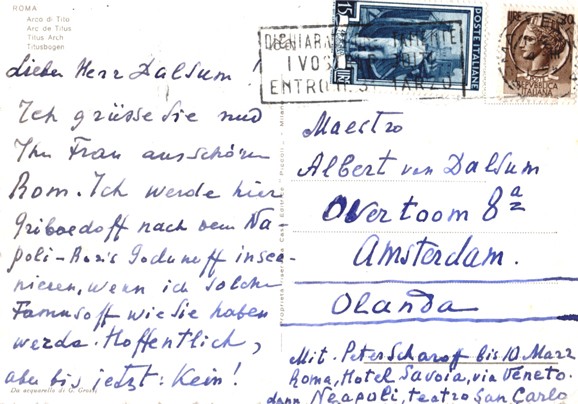 ROMA
Arco di Tito
Arc de Titus
Titus Arch
Titusbogen
Lieber Herr Dalsum!
Ich grüsse Sie und
Ihre Frau aus schönen
Rom. Ich werde hier
Griboedoff nach dem Na-
poli-Boris Godunoff insce-
nieren, wenn ich solche
Famusoff wie Sie haben
werde. Hoffentlich,
aber bis jetzt: Kein!
Da acquerello di G. Grossi
ENTRO IL 31 MARZO
POSTE ITALIANE
15
LIRE
LIRE 30
REPVBBLICA
ITALIANA
Maestro
Albert van Dalsum
Overtoom 8a
Amsterdam.
Olanda
Mit. Peter Scharoff bis 10 März
Roma, Hotel Savoia, via Veneto.
dann Neapoli, teatro San Carlo